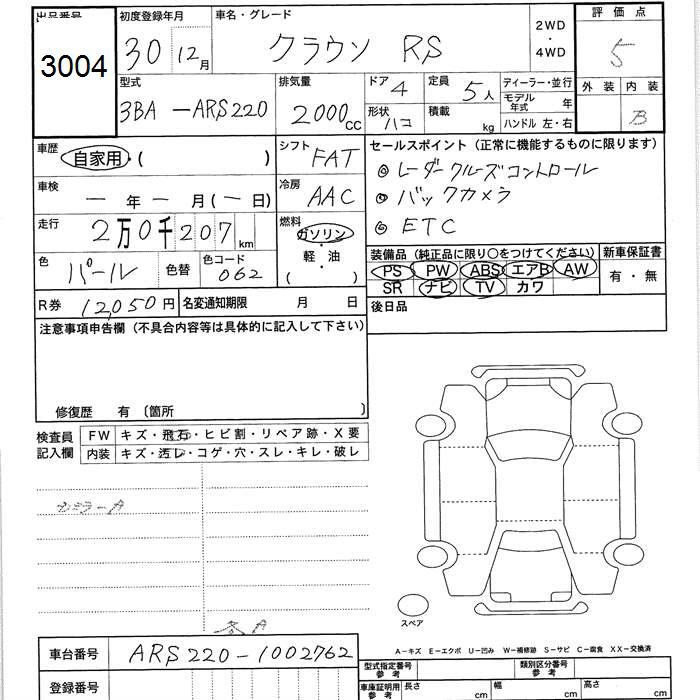 出品番号 初度登録年月 車名・グレード 2WD・4WD 評価点
3004 30 12月 クラウン RS 5
型式 排気量 ドア 4 定員 5人 ディーラー・並行 外装 内装
3BA-ARS220 2000cc 形状 ハコ 積載 kg モデル年式 年 B
ハンドル 左・右
車歴 自家用・( ) シフト FAT セールスポイント(正常に機能するものに限ります)
◎ レーダークルーズコントロール
車検 ー年ー月(ー日) 冷房 AAC ◎ バックカメラ
走行 2万0千207km 燃料 ガソリン・軽・油 ( ) ◎ ETC
色 パール 色替 色コード 062
装備品(純正品に限り○をつけてください) 新車保証書
PS PW ABS エアB AW 有・無
SR ナビ TV カワ
R券 12,050円 名変通知期限 月 日 後日品
注意事項申告欄(不具合内容等は具体的に記入して下さい)
修復歴 有 〔箇所 〕
検査員記入欄 FW キズ・飛石・ヒビ割・リペア跡・X要
内装 キズ・汚レ・コゲ・穴・スレ・キレ・破レ
スペア
A-キズ E-エクボ U-凹み W-補修跡 S-サビ C-腐食 XX-交換済
車台番号 ARS220-1002762
型式指定番号 参考 類別区分番号 参考
登録番号 車庫証明用 参考 長さ cm 幅 cm 高さ cm